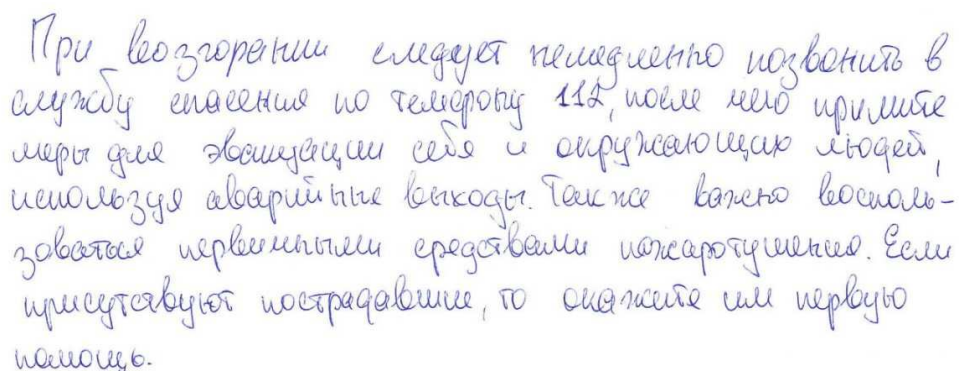 При возгорании следует немедленно позвонить в
службу спасения по телефону 112, после чего примите
меры для эвакуации себя и окружающих людей,
используя аварийные выходы. Также важно восполь-
зоваться первичными средствами пожаротушения. Если
присутствуют пострадавшие, то окажите им первую
помощь.